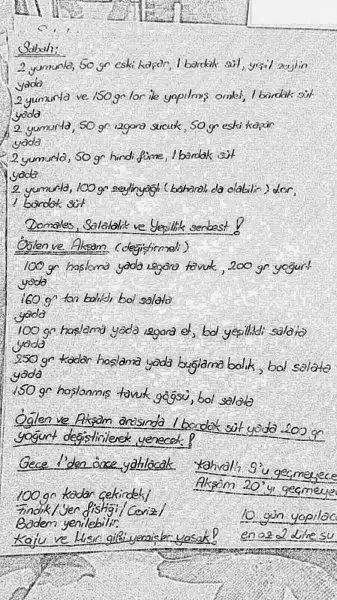 Sabah:
2 yumurta, 50 gr eski kaşar, 1 bardak süt, yeşil zeytin
yada
2 yumurta ve 150 gr lor ile yapılmış omlet, 1 bardak süt
yada
2 yumurta, 50 gr ızgara sucuk, 50 gr eski kaşar
yada
2 yumurta, 50 gr hindi füme, 1 bardak süt
yada
2 yumurta, 100 gr zeytinyağlı (baharatlı da olabilir) lor,
1 bardak süt
Domates, Salatalık ve Yeşillik serbest!
Öğlen ve Akşam (değiştirmeli)
100 gr haşlama yada ızgara tavuk, 200 gr yoğurt
yada
160 gr ton balıklı bol salata
yada
100 gr haşlama yada ızgara et, bol yeşillikli salata
yada
250 gr kadar haşlama yada buğlama balık, bol salata
yada
150 gr haşlanmış tavuk göğsü, bol salata
Öğlen ve Akşam arasında 1 bardak süt yada 200 gr
yoğurt değiştirilerek yenecek!
Gece 1'den önce yatılacak
Kahvaltı 9'u geçmeyece
Akşam 20'yi geçmeye
100 gr kadar çekirdek/
Fındık/Yer fıstığı/Ceviz/
Badem yenilebilir.
Kaju ve Mısır gibi yemişler yasak!
10 gün yapılac
en az 2 litre su